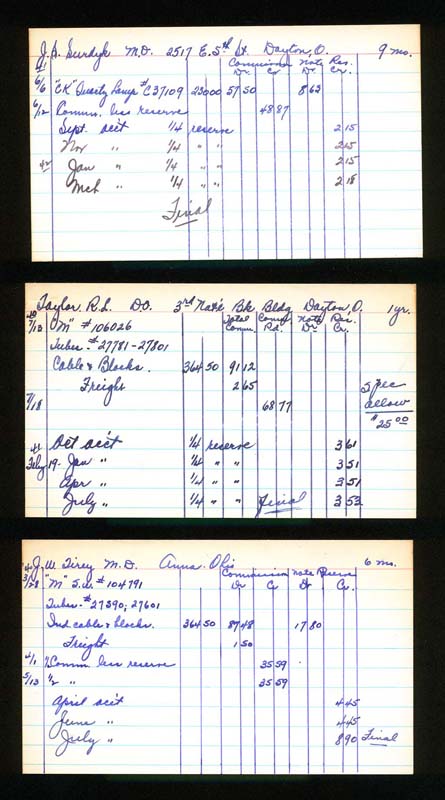 J. A. Surdyk M.D. 2517 E. 5th St. Dayton, O. 9 mo.
Commission Note Res.
Dr. Cr Dr. Cr.
41
6/6 "EK" Quartz Lamp #C37109 23000 57 50 8 63
6/12 Comm. less reserve 48 87
Sept. acct 1/4 reserve 2 15
Nov " 1/4 " " 2 15
42 Jan " 1/4 " " 2 15
Mch " 1/4 " " 2 18
Final
Taylor, R. L. D.O. 3rd Nat'l Bk Bldg Dayton, O. 1 yr.
Total Comm Note Res.
Comm. Pd. Dr. Cr.
40
7/13 "M" #106026
Tubes - #27781-27801
Cable & Blocks. 364 50 91 12
Freight 2 65 Spec
7/18 68 77 allow
$25 00
41 Oct acc't 1/4 reserve 3 61
July 19- Jan " 1/4 " " 3 51
Apr " 1/4 " " 3 51
July " 1/4 " " Final 3 52
J. W. Tirey M.D. Anna Ohio 6 mo.
Commission Note Reserve
Dr Cr Dr Cr.
3/28 "M" S.W. #104791
Tubes - #27390; 27601
Ind. cable & blocks. 364 50 87 48 17 80
Freight 1 50
4/1 1/2 Comm. less reserve 35 59
5/13 1/2 " " 35 59
April acc't 4 45
June " 4 45
July " 8 90 Final